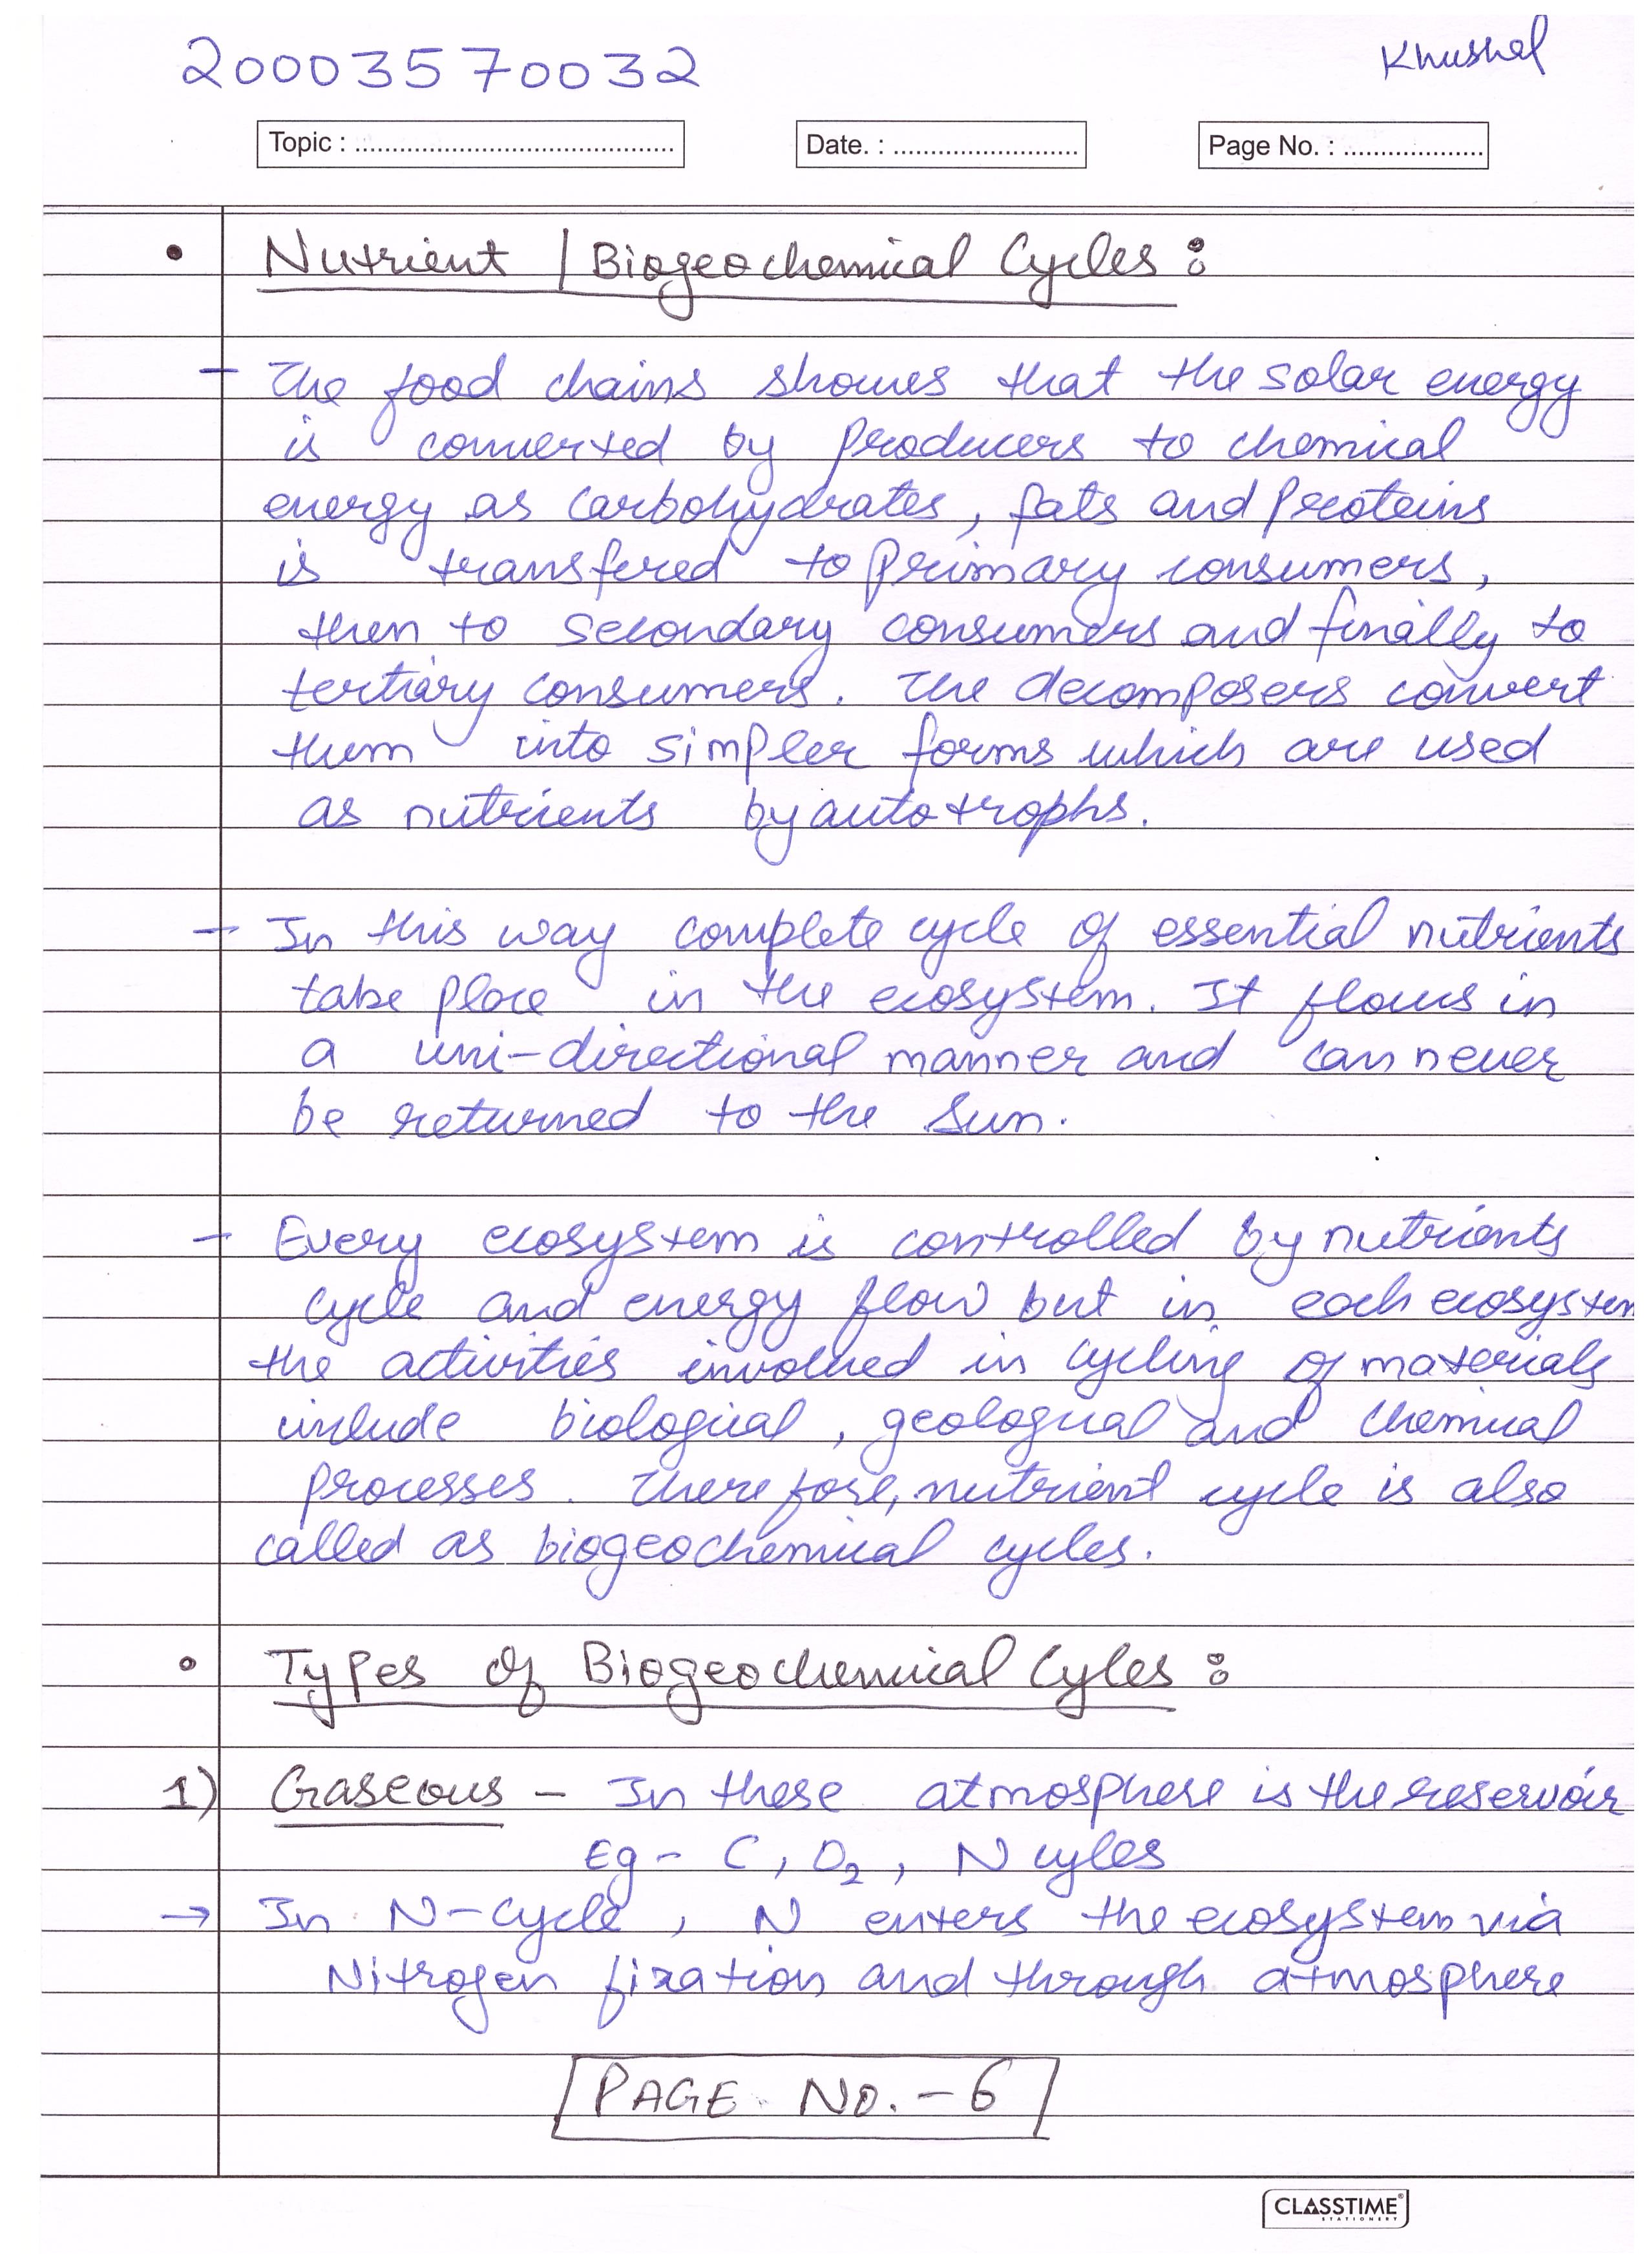 20003570032
Khushal
Topic : ............................................
Date. : .........................
Page No. : ...................
• Nutrient / Biogeochemical Cycles :
- The food chains showes that the solar energy
is converted by producers to chemical
energy as carbohydrates, fats and proteins
is transfered to primary consumers,
then to secondary consumers and finally to
tertiary consumers. The decomposers convert
them into simpler forms which are used
as nutrients by autotrophs.
- In this way complete cycle of essential nutrients
take place in the ecosystem. It flows in
a uni-directional manner and can never
be returned to the Sun.
- Every ecosystem is controlled by nutrients
cycle and energy flow but in each ecosystem
the activities involved in cycling of materials
include biological, geological and chemical
processes. Therefore, nutrient cycle is also
called as biogeochemical cycles.
• Types of Biogeochemical Cyles :
1) Gaseous - In these atmosphere is the reservoir
Eg - C, O₂, N cyles
→ In N-cycle, N enters the ecosystem via
Nitrogen fixation and through atmosphere
PAGE NO. - 6
CLASSTIME®
STATIONERY